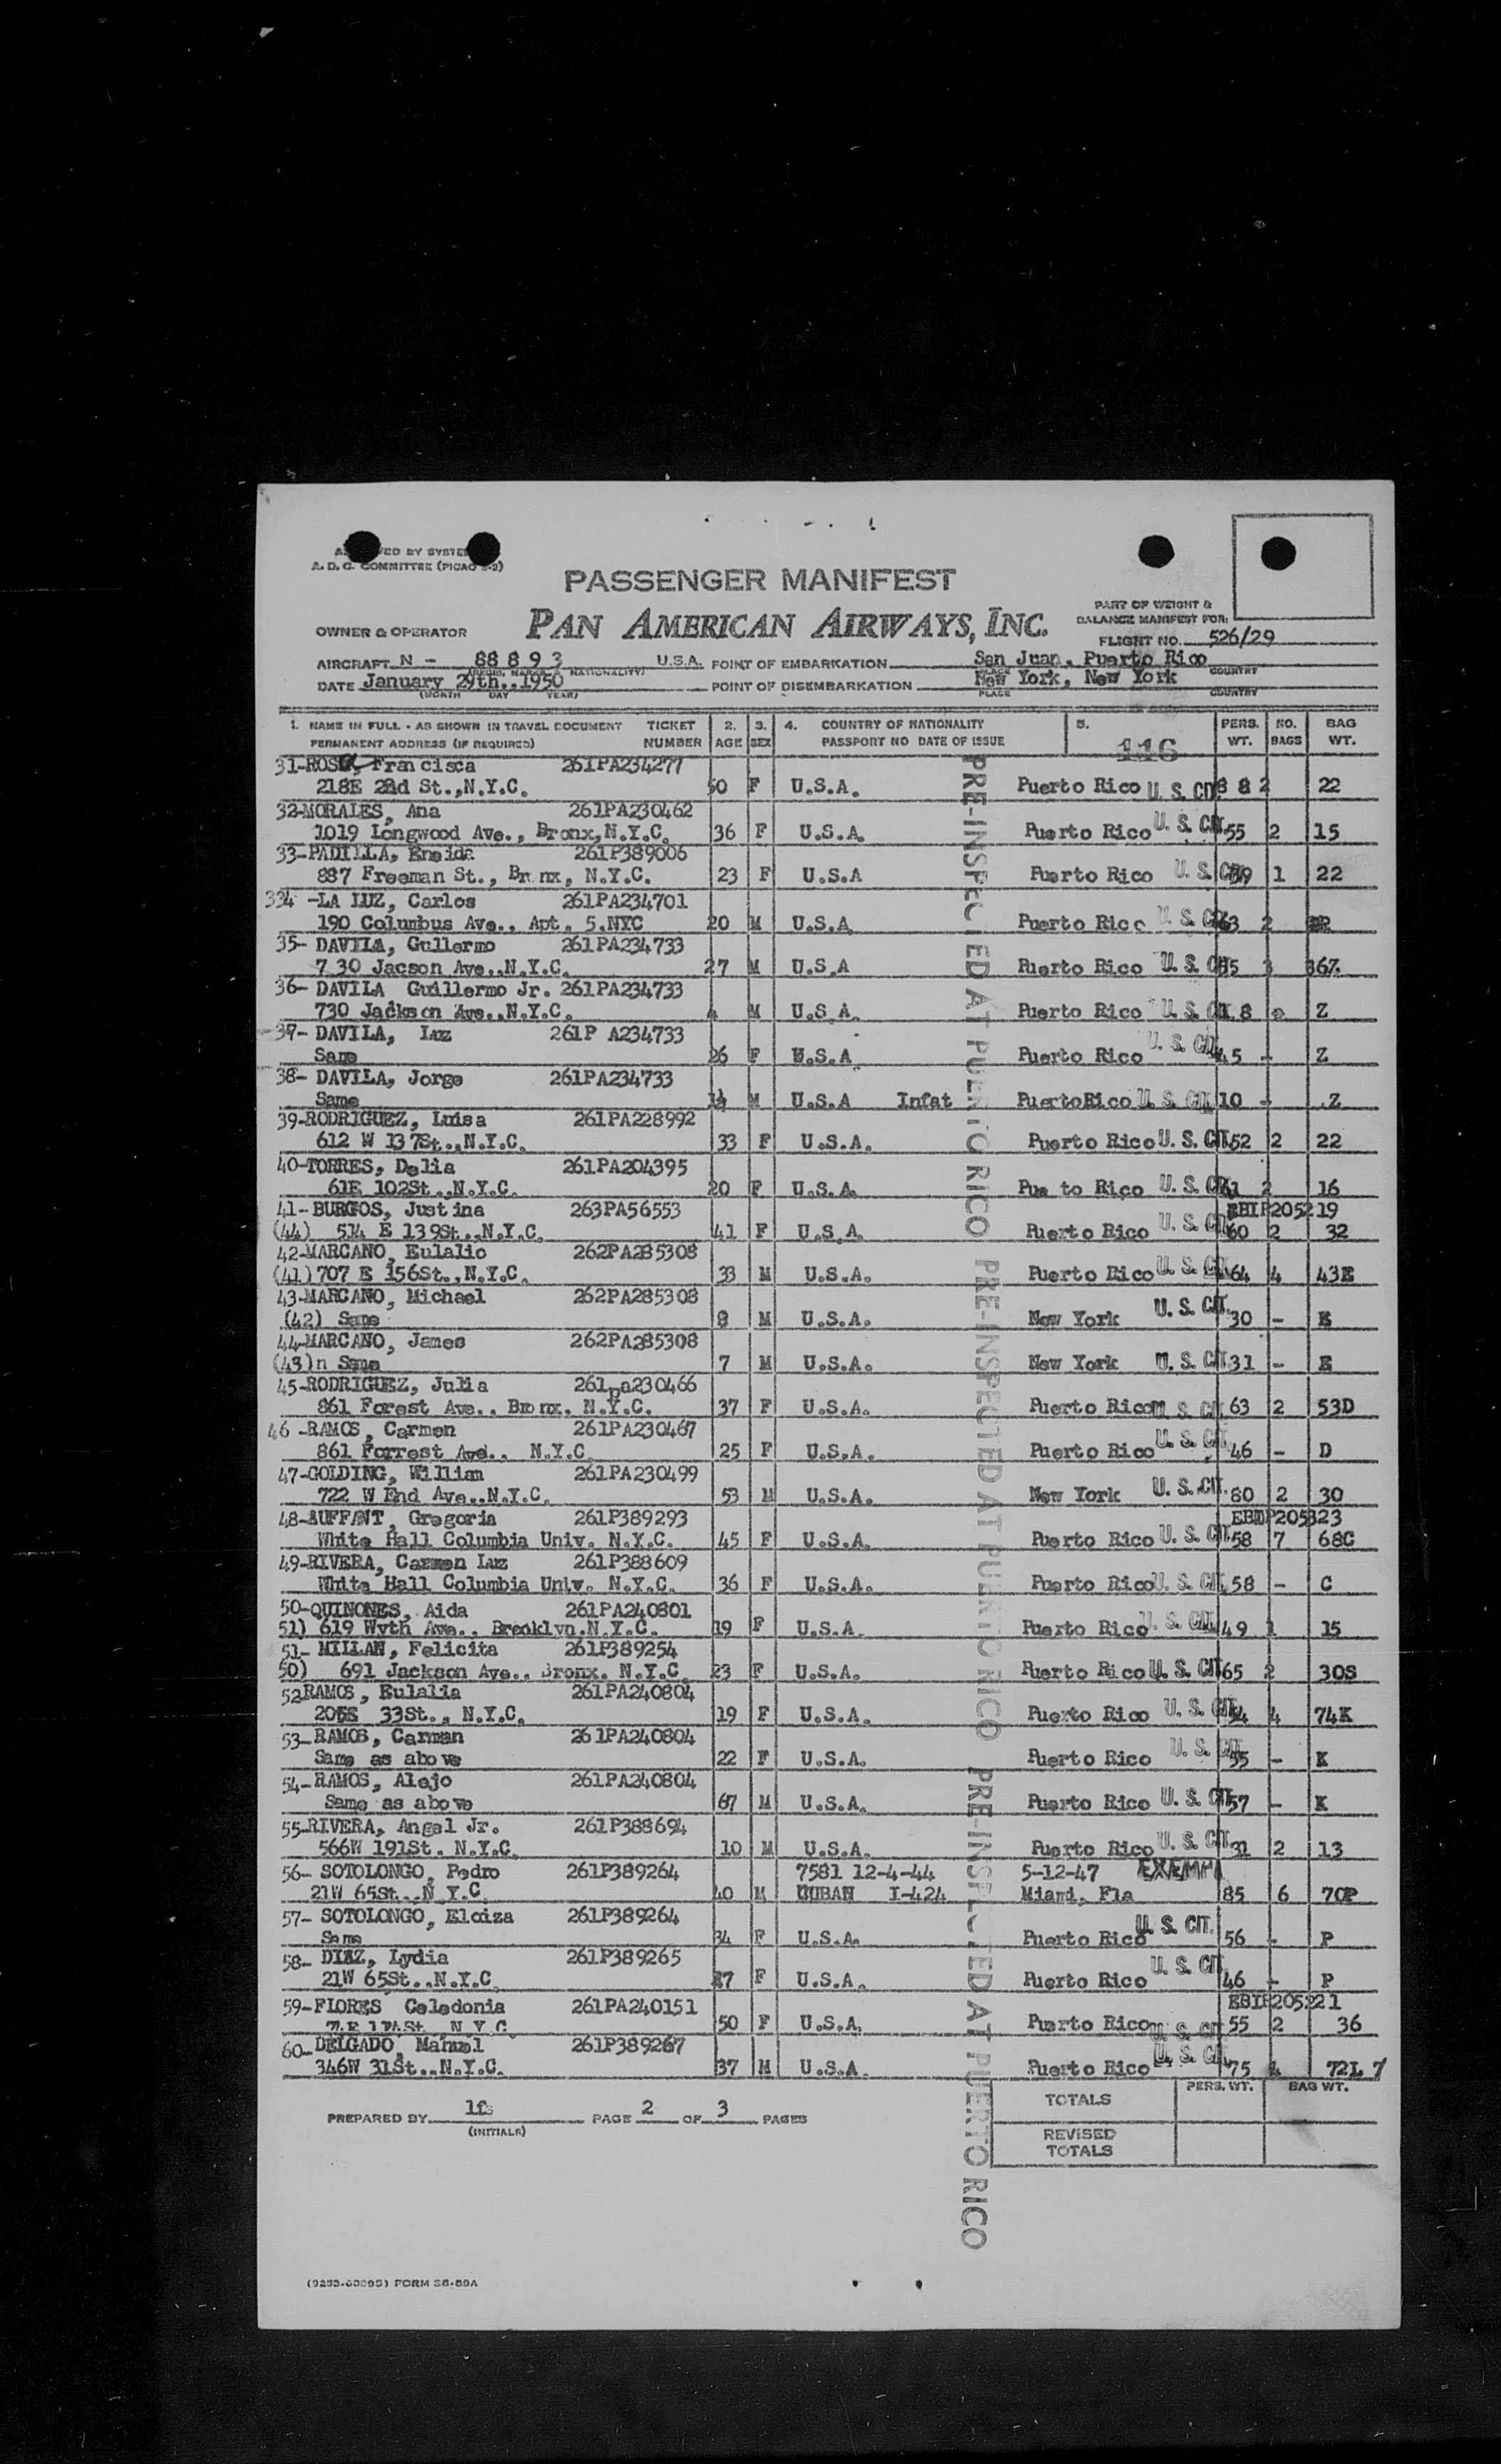 PASSENGER MANIFEST
PAN AMERICAN AIRWAYS, INC.
A. D. C. COMMITTEE (PICAO
PART OF WEIGHT &
BALANCE MANIFEST FOR:
OWNER & OPERATOR
FLIGHT NO. 526/29
AIRCRAFT N - 88893 U.S.A. POINT OF EMBARKATION San Juan, Puerto Rico
DATE January 29th.,1950 POINT OF DISEMBARKATION New York, New York
(MONTH DAY YEAR) PLACE COUNTRY
1. NAME IN FULL - AS SHOWN IN TRAVEL DOCUMENT TICKET 2. 3. 4. COUNTRY OF NATIONALITY 5. PERS. NO. BAG
PERMANENT ADDRESS (IF REQUIRED) NUMBER AGE SEX PASSPORT NO DATE OF ISSUE WT. BAGS WT.
116
31-ROSA, Francisca 261PA234277
218E 2nd St.,N.Y.C. F U.S.A. Puerto Rico U. S. CIT 22
32-MORALES, Ana 261PA230462
1019 Longwood Ave., Bronx,N.Y.C. 36 F U.S.A. Puerto Rico U. S. CIT 55 2 15
33-PADILLA, Eneida 261P389006
887 Freeman St., Bronx, N.Y.C. 23 F U.S.A Puerto Rico U. S. 1 22
334 -LA LUZ, Carlos 261PA234701
190 Columbus Ave., Apt. 5.NYC 20 M U.S.A Puerto Rico U. S. CIT 63 2
35- DAVILA, Gullermo 261PA234733
7 30 Jacson Ave..N.Y.C. 27 M U.S.A Puerto Rico U. S.
36- DAVILA Guillermo Jr. 261PA234733
730 Jackson Ave..N.Y.C. M U.S.A. Puerto Rico U. S. Z
37- DAVILA, Luz 261P A234733
Same 26 F U.S.A Puerto Rico U. S. CIT 45 - Z
38- DAVILA, Jorge 261PA234733
Same M U.S.A Infat PuertoRico U. S. CIT. 10 - Z
39-RODRIGUEZ, Luisa 261PA228992
612 W 137St.,N.Y.C. 33 F U.S.A. Puerto Rico U. S. CIT. 52 2 22
40-TORRES, Delia 261PA204395
61E 102St..N.Y.C. 20 F U.S.A. Pue to Rico U. S. CIT 2 16
41-BURGOS, Justina 263PA56553 EBIP205219
(44) 514 E 139St..N.Y.C. 41 F U.S.A. Puerto Rico U. S. 60 2 32
42-MARCANO, Eulalio 262PA285308
(41)707 E 156St.,N.Y.C. 33 M U.S.A. Puerto Rico U. S. CIT. 64 4 43E
43-MARCANO, Michael 262PA285308
(42) Same 8 M U.S.A. New York U. S. CIT. 30 - E
44-MARCANO, James 262PA285308
(43)n Same 7 M U.S.A. New York U. S. CIT. 31 - E
45-RODRIGUEZ, Julia 261pa230466
861 Forest Ave.. Bronx. N.Y.C. 37 F U.S.A. Puerto Rico U. S. CIT. 63 2 53D
46 -RAMOS, Carmen 261PA230467
861 Forrest Ave.. N.Y.C. 25 F U.S.A. Puerto Rico U. S. CIT 46 - D
47-GOLDING, William 261PA230499
722 W End Ave..N.Y.C. 53 M U.S.A. New York U. S. CIT. 80 2 30
48-AUFFANT, Gregoria 261P389293
White Hall Columbia Univ. N.Y.C. 45 F U.S.A. Puerto Rico U. S. CIT 58 7 68C
49-RIVERA, Carmen Luz 261P388609
White Hall Columbia Univ. N.Y.C. 36 F U.S.A. Puerto Rico U. S. CIT. 58 - C
50-QUINONES, Aida 261PA240801
51) 619 Wyth Ave.. Brooklyn.N.Y.C. 19 F U.S.A. Puerto Rico U. S. CIT. 49 1 15
51- MILLAN, Felicita 261P389254
50) 691 Jackson Ave.. Bronx. N.Y.C 23 F U.S.A. Puerto Rico U. S. CIT 65 2 30S
52RAMOS, Eulalia 261PA240804
33St., N.Y.C. 19 F U.S.A. Puerto Rico U. S. CIT 4 74K
53-RAMOS, Carman 261PA240804
Same as above 22 F U.S.A. Puerto Rico U. S. CIT. 55 - K
54-RAMOS, Alejo 261PA240804
Same as above 67 M U.S.A. Puerto Rico U. S. CIT 57 - K
55-RIVERA, Angel Jr. 261P388694
566W 191St. N.Y.C. 10 M U.S.A. Puerto Rico U. S. CIT. 31 2 13
56- SOTOLONGO, Pedro 261P389264 7581 12-4-44 5-12-47 EXEMPT
21W 65St..N Y.C 40 M CUBAN I-424 Miami, Fla 85 6 70P
57- SOTOLONGO, Eloiza 261P389264
Same 34 F U.S.A. Puerto Rico U. S. CIT. 56 - P
58- DIAZ, Lydia 261P389265
21W 65St..N.Y.C 27 F U.S.A. Puerto Rico U. S. CIT 46 - P
59-FLORES Celedonia 261PA240151 EBIP205221
N Y C 50 F U.S.A. Puerto Rico U. S. CIT 55 2 36
60-DELGADO, Manuel 261P389267
346W 31St..N.Y.C. 37 M U.S.A. Puerto Rico U. S. CIT. 75 4 72L
PRE-INSPECTED AT PUERTO RICO
PRE-INSPECTED AT PUERTO RICO
PRE-INSPECTED AT PUERTO RICO
PREPARED BY lfs PAGE 2 OF 3 PAGES
(INITIALS)
PERS. WT. BAG WT.
TOTALS
REVISED
TOTALS